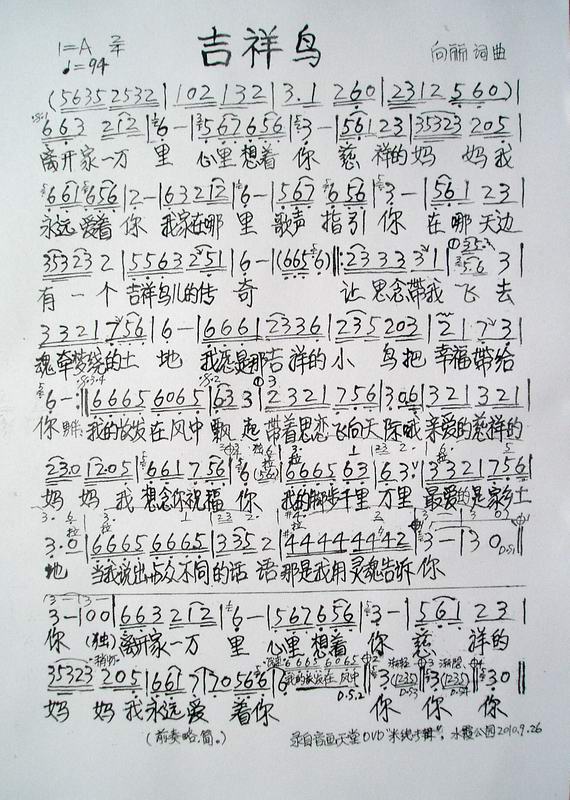 吉祥鸟
1=A 2/4
♩=94
向丽 词曲
(5635 2532 | 102 132 | 3.1 260 | 2312 560)
663 212 | 6 – | 567656 | 3 – | 561 23 | 35323 205 |
离开家一万 里 心里想着 你 慈 祥的妈 妈我
661 656 | 2 – | 632212 | 6 – | 567 656 | 3 – | 561 23 |
永远爱着 你 我家在哪 里 歌声 指引 你 在 哪 天边
35323 2 | 55632 251 | 6 – | (6656) ‖: 23333 31 | 3 |
有 一 个 吉祥鸟儿的传 奇 让 思念带我 飞 去
3321 756 | 6 – | 6661 2336 | 235 203 | 2 1 7 3 |
魂牵梦绕的土 地 我愿是那吉祥的小 鸟把 幸福带给
6 – :‖ 6665 6065 | 633 | 2321 756 | 306 | 321 321 |
你 我的散发在风中 飘 起 带着思恋飞向天际哦 亲爱的慈祥的
2301205 | 661 756 | 6 | 6665 63 | 63 | 3321 756 |
妈 妈 我 想念你祝福 你 我的脚步千里 万里 最爱的是家乡土
3.0 | 6665 6665 | 335 2 | 444444 42 | 3 – | 30 D.S.1
地 当我说出 众不同的话 语那是我用灵魂告诉 你
3 – 100 | 663 212 | 6 – | 567656 | 3 – | 561 23 |
你 (独) 离开家一万 里 心里 想着 你 慈 祥的
35323 205 | 661 7 | 70565 | 6 6665 6065 D.S.2 | 3 (1235) D.S.3 | 3 (1235) D.S.4 | 30 ‖
妈 妈 我永远爱 着你 我的散发在 风中 你 你 你
(前奏略.简。) 录自音画天堂DVD 水霞公园2010.9.26